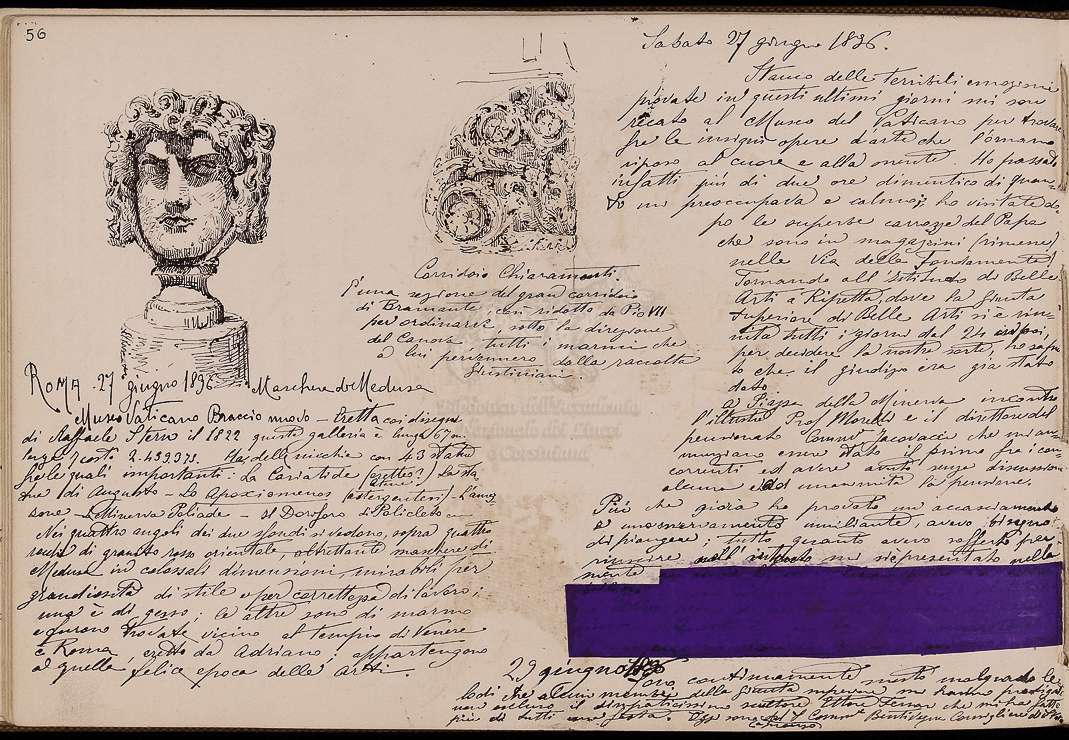 56
ROMA. 27 giugno 1896 Maschera di Medusa
Museo Vaticano Braccio nuovo – Eretta coi disegni
di Raffaele Stern il 1822 questa galleria è lunga
larga costò Ha delle nicchie con 43 statue
fra le quali importanti: La Cariatide La sta
tua di Augusto – Lo Apoxiomenos L'amaz
zone – Minerva Poliade – Il Doriforo di Policleto
Nei quattro angoli dei due sfondi si vedono, sopra quattro
di granito rosso orientale, altrettante maschere di
Medusa in colossali dimensioni, mirabili per
grandiosità di stile e per correttezza di lavoro;
una è di gesso; le altre sono di marmo
e furono trovate vicino al tempio di Venere
e Roma, eretto da Adriano; appartengono
a quella felice epoca delle arti.
Corridoio Chiaramonti.
È una sezione del gran corridoio
di Bramante, così ridotto da Pio VII
per ordinarvi, sotto la direzione
del Canova tutti i marmi che
a lui pervennero dalla raccolta
Giustiniani.
Biblioteca dell'Accademia
Nazionale dei Lincei
e Corsiniana
Sabato 27 giugno 1896.
Stanco delle terribili emozioni
provate in questi ultimi giorni mi son
recato al Museo del Vaticano per trovare
fra le insigni opere d'arte che l'ornano
riposo al cuore e alla mente. Ho passato
infatti più di due ore dimentico di quan-
to mi preoccupava e calmo; ho visitato do-
po le superbe carrozze del Papa
che sono in magazzini (rimesse)
nella Via delle Fondamenta
Tornando all'Istituto di Belle
Arti a Ripetta, dove la Giunta
Superiore di Belle Arti si è riu-
nita tutti i giorni dal 24 in poi,
per decidere la nostra sorte, ho sapu
to che il giudizo era già stato
dato.
A Piazza della Minerva incontro
l'illustre Prof. Morelli e il direttore del
pensionato Comm. Jacovacci che mi an-
nunziano essere stato il primo fra i con-
correnti ed avere avuto senza discussione
alcuna ed ad unanimità la pensione.
Più che gioia ho provato un accasciamento
e uno snervamento umiliante, avevo bisogno
di piangere; tutto quanto avevo sofferto per
riuscire nell'intento mi si è presentato nella
mente
29 giugno 1896
Sono continuamente mesto malgrado le
lodi che alcuni membri della Giunta superiore mi hanno
non escluso il simpaticissimo scultore Ettore Ferrari che mi ha fatto
più di tutti una festa. Oggi